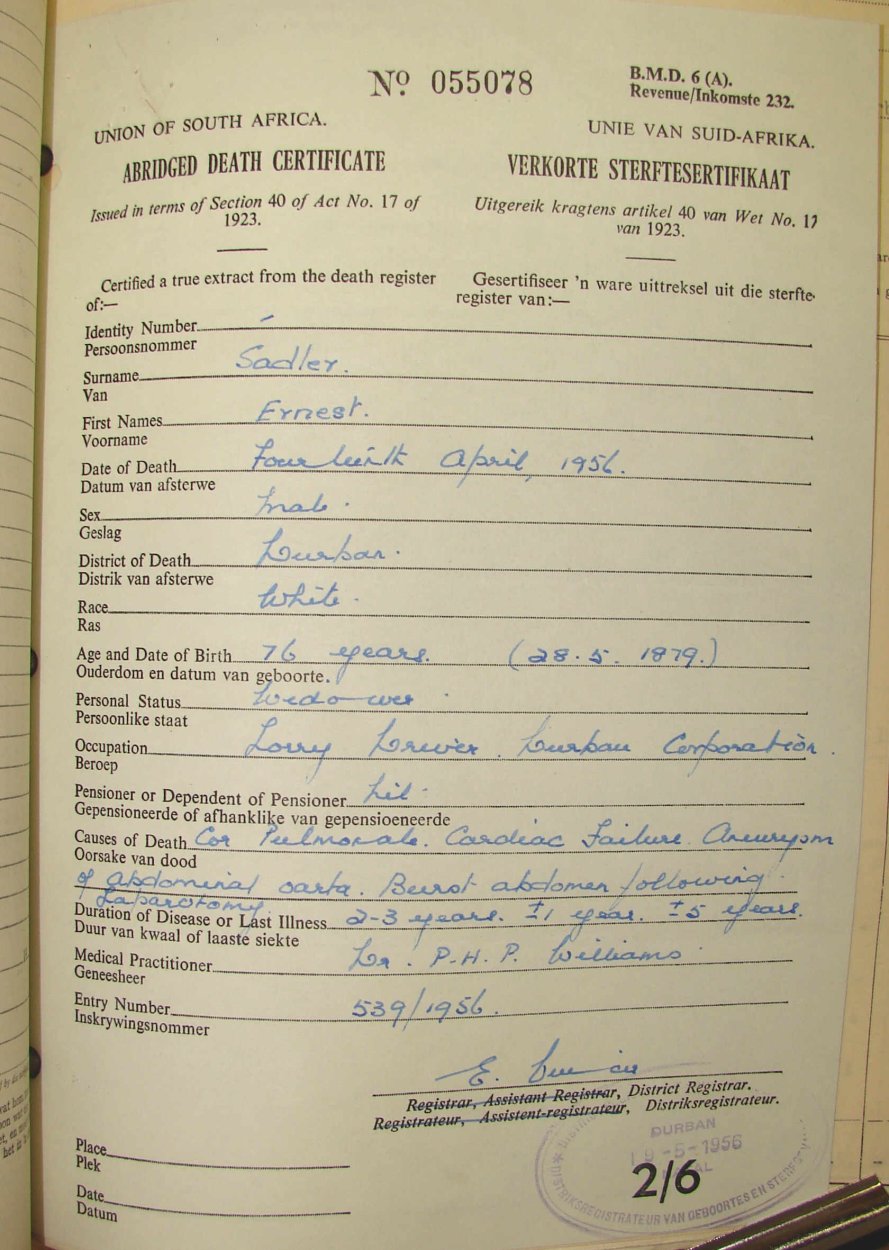 No 055078
B.M.D. 6 (A).
Revenue/Inkomste 232.
UNION OF SOUTH AFRICA.
ABRIDGED DEATH CERTIFICATE
Issued in terms of Section 40 of Act No. 17 of
1923.
UNIE VAN SUID-AFRIKA.
VERKORTE STERFTESERTIFIKAAT
Uitgereik kragtens artikel 40 van Wet No. 17
van 1923.
Certified a true extract from the death register
of:—
Gesertifiseer 'n ware uittreksel uit die sterfte-
register van:—
Identity Number -
Persoonsnommer
Surname Sadler.
Van
First Names Ernest.
Voorname
Date of Death Fourteenth April, 1956.
Datum van afsterwe
Sex Male.
Geslag
District of Death Durban.
Distrik van afsterwe
Race White.
Ras
Age and Date of Birth 76 years. (28.5.1879.)
Ouderdom en datum van geboorte.
Personal Status Widower.
Persoonlike staat
Occupation Lorry Driver. Durban Corporation.
Beroep
Pensioner or Dependent of Pensioner Nil.
Gepensioneerde of afhanklike van gepensioeneerde
Causes of Death Cor Pulmonale. Cardiac Failure. Aneurysm
Oorsake van dood
of abdominal oarta. Burst abdomen following
Laparotomy.
Duration of Disease or Last Illness 2-3 years. ±1 year. ±5 years.
Duur van kwaal of laaste siekte
Medical Practitioner Dr. P.H.P. Williams.
Geneesheer
Entry Number 539/1956.
Inskrywingsnommer
E.
Registrar, Assistant Registrar, District Registrar.
Registrateur, Assistent-registrateur, Distriksregistrateur.
Place
Plek
Date
Datum
DURBAN
-5-1956
2/6
DISTRIKSREGISTRATEUR VAN GEBOORTES EN STERF